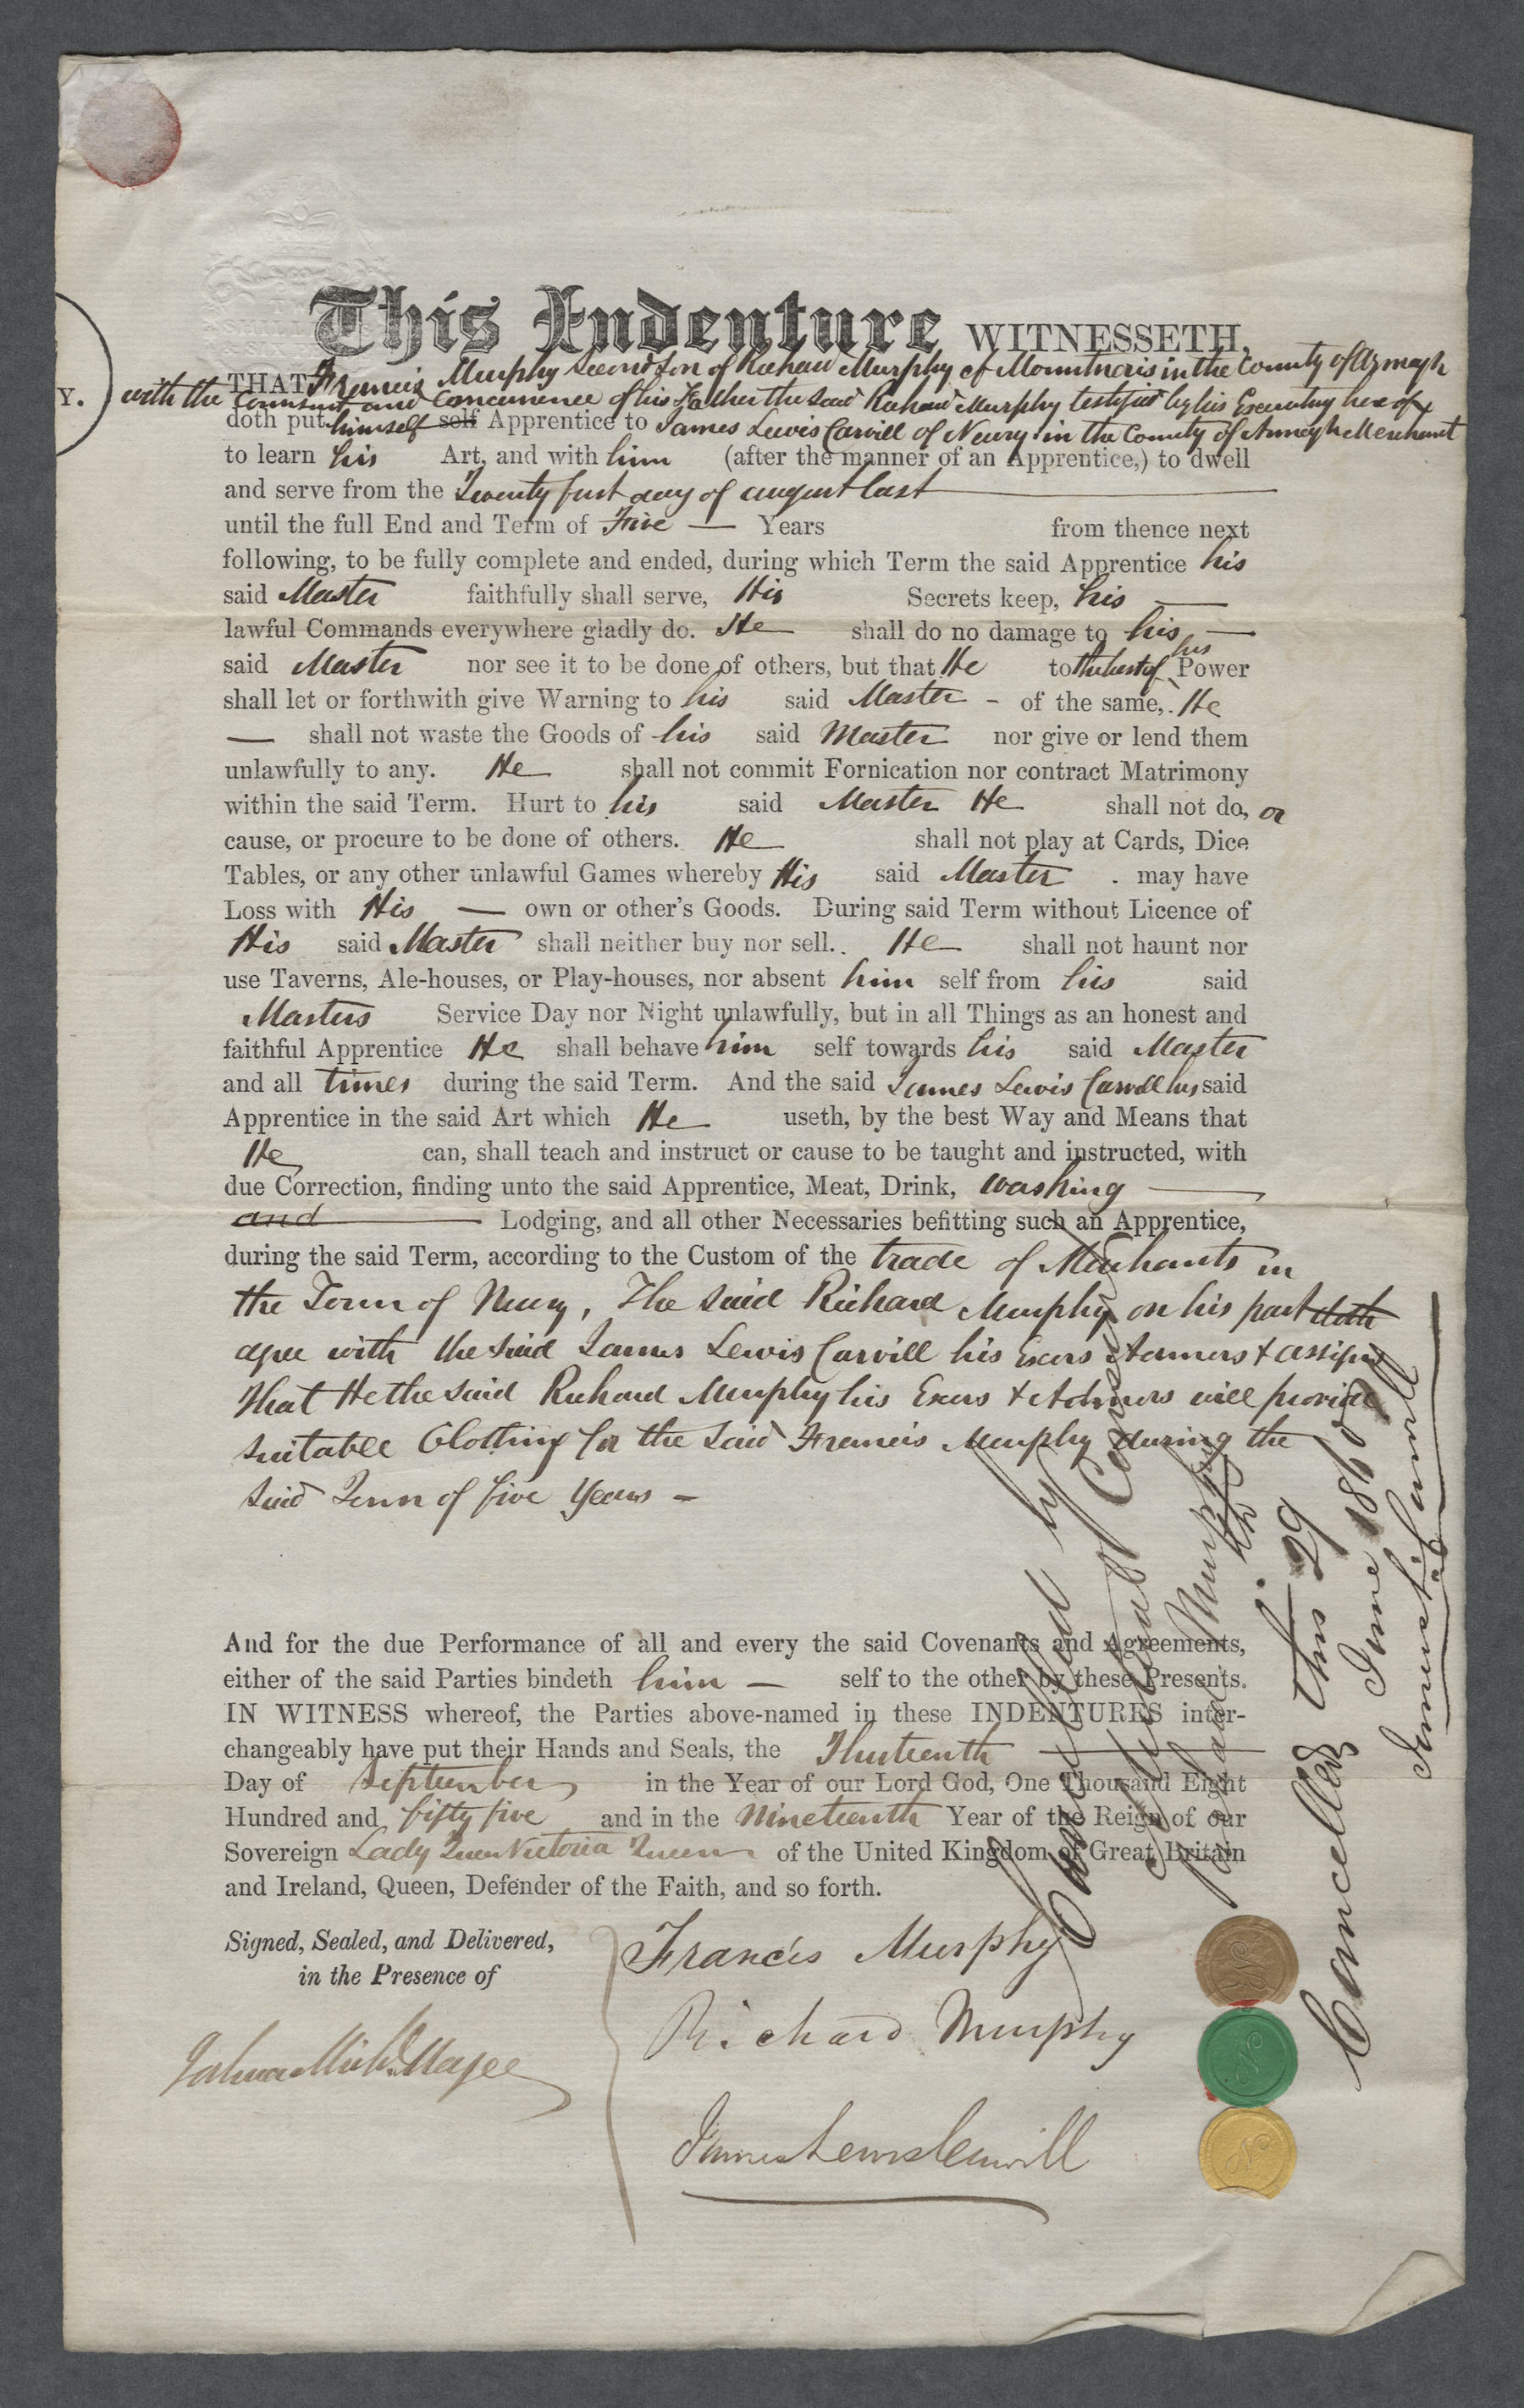 This Indenture WITNESSETH,
THAT Francis Murphy Second Son of Richard Murphy of Mountnoris in the County of Armagh
Y. with the Consent and Concurrence of his Father the said Richard Murphy testified by his Executing hereof
doth put himself self Apprentice to James Lewis Carvill of Newry in the County of Armagh Merchant
to learn his Art, and with him (after the manner of an Apprentice,) to dwell
and serve from the Twenty first day of august last
until the full End and Term of Five Years from thence next
following, to be fully complete and ended, during which Term the said Apprentice his
said Master faithfully shall serve, His Secrets keep, his
lawful Commands everywhere gladly do. He shall do no damage to his
said Master nor see it to be done of others, but that He to the best of his Power
shall let or forthwith give Warning to his said Master - of the same, He
shall not waste the Goods of his said Master nor give or lend them
unlawfully to any. He shall not commit Fornication nor contract Matrimony
within the said Term. Hurt to his said Master He shall not do, or
cause, or procure to be done of others. He shall not play at Cards, Dice
Tables, or any other unlawful Games whereby His said Master may have
Loss with His own or other's Goods. During said Term without Licence of
His said Master shall neither buy nor sell. He shall not haunt nor
use Taverns, Ale-houses, or Play-houses, nor absent him self from his said
Masters Service Day nor Night unlawfully, but in all Things as an honest and
faithful Apprentice He shall behave him self towards his said Master
and all times during the said Term. And the said James Lewis Carvill his said
Apprentice in the said Art which He useth, by the best Way and Means that
He can, shall teach and instruct or cause to be taught and instructed, with
due Correction, finding unto the said Apprentice, Meat, Drink, Washing
and Lodging, and all other Necessaries befitting such an Apprentice,
during the said Term, according to the Custom of the trade of Merchants in
the Town of Newry, The said Richard Murphy on his part doth
agree with the said James Lewis Carvill his Exors Admors & assigns
that He the said Richard Murphy his Exors & Admors will provide
suitable Clothing for the said Francis Murphy during the
said Term of five Years -
And for the due Performance of all and every the said Covenants and Agreements,
either of the said Parties bindeth him self to the other by these Presents.
IN WITNESS whereof, the Parties above-named in these INDENTURES inter-
changeably have put their Hands and Seals, the Thirteenth
Day of September in the Year of our Lord God, One Thousand Eight
Hundred and fifty five and in the Nineteenth Year of the Reign of our
Sovereign Lady Queen Victoria Queen of the United Kingdom of Great Britain
and Ireland, Queen, Defender of the Faith, and so forth.
Signed, Sealed, and Delivered,
in the Presence of
Francis Murphy
Richard Murphy
James Lewis Carvill
Cancelled by
Mutual Consent
Richard Murphy
Cancelled this 29
June 1860
James L Carvill